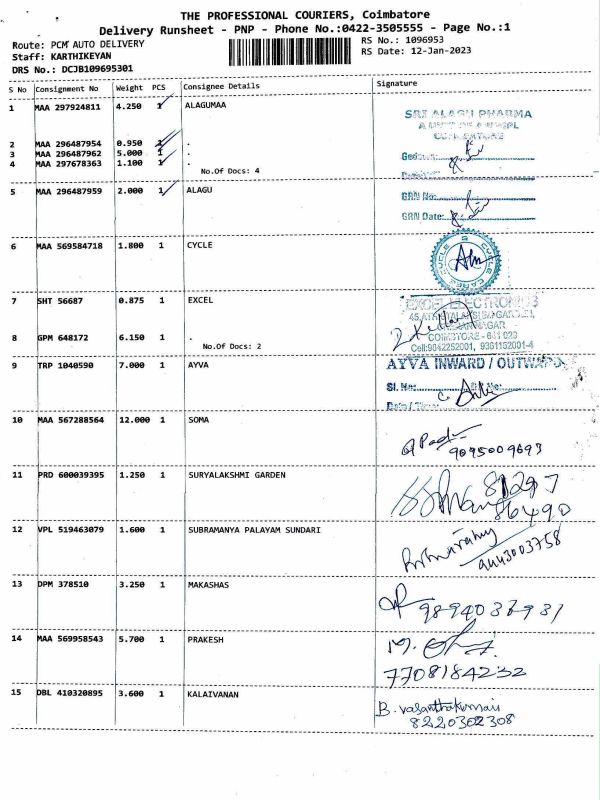 THE PROFESSIONAL COURIERS, Coimbatore
Delivery Runsheet - PNP - Phone No.:0422-3505555 - Page No.:1
Route: PCM AUTO DELIVERY
RS No.: 1096953
Staff: KARTHIKEYAN
RS Date: 12-Jan-2023
DRS No.: DCJB109695301
S No Consignment No Weight PCS Consignee Details Signature
1 MAA 297924811 4.250 1 ALAGUMAA
SRI ALAGU PHARMA
2 MAA 296487954 0.950 1 .
3 MAA 296487962 5.000 1 .
4 MAA 297678363 1.100 1 .
No.Of Docs: 4
5 MAA 296487959 2.000 1 ALAGU
GRN No:
GRN Date:
6 MAA 569584718 1.800 1 CYCLE
7 SHT 56687 0.875 1 EXCEL
EXCEL ELECTRONICS
8 GPM 648172 6.150 1 .
COIMBATORE - 641 020
Cell:9842252001, 9361152001-4
No.Of Docs: 2
9 TRP 1040590 7.000 1 AYVA
AYVA INWARD / OUTWARD
Sl. No:
10 MAA 567288564 12.000 1 SOMA
9095009693
11 PRD 600039395 1.250 1 SURYALAKSHMI GARDEN
81297
86490
12 VPL 519463079 1.600 1 SUBRAMANYA PALAYAM SUNDARI
9443003758
13 DPM 378510 3.250 1 MAKASHAS
9894037931
14 MAA 569958543 5.700 1 PRAKESH
7708184232
15 DBL 410320895 3.600 1 KALAIVANAN
B. Vasanthakumari
8220302308